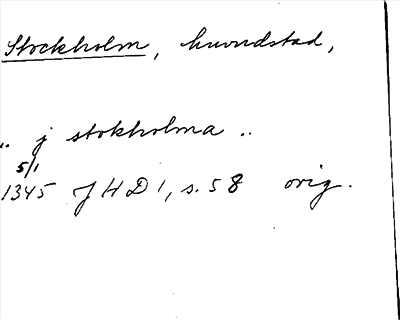 Stockholm, huvudstad,
.. j stokholma ..
5/1
1345 JHD 1, s. 58 orig.